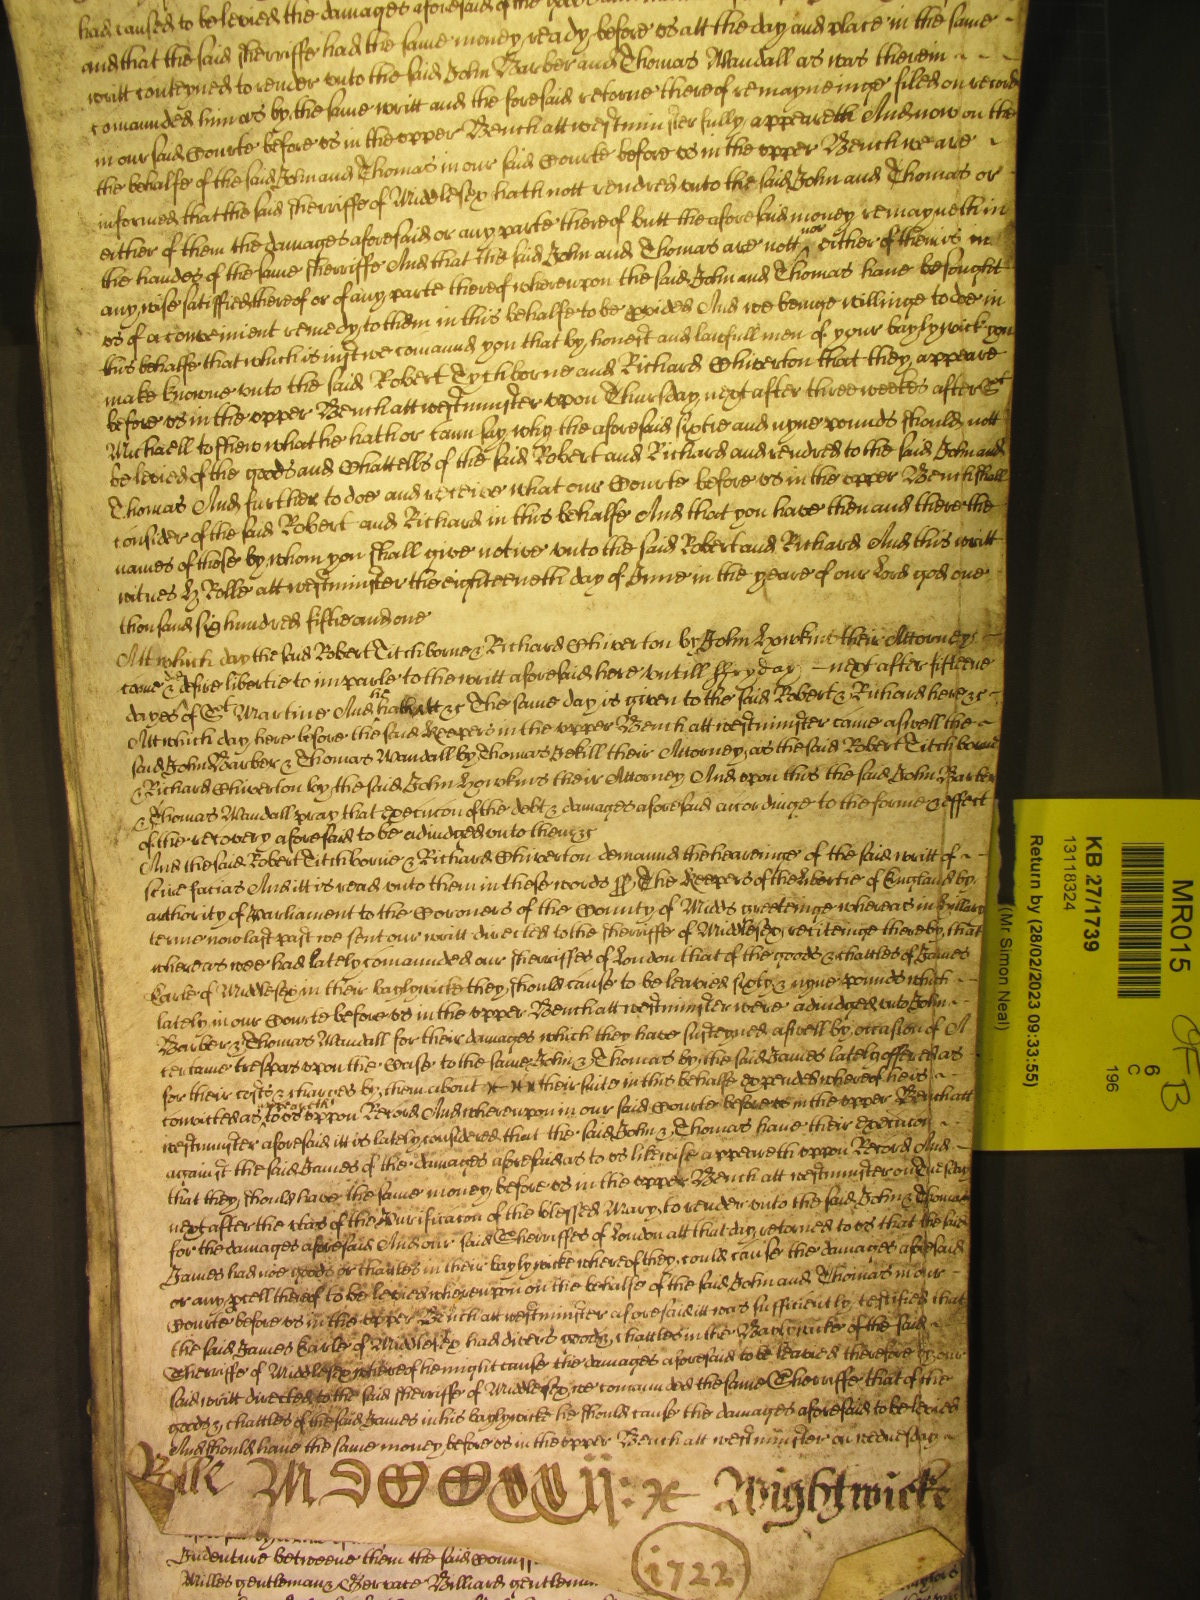 had caused to be levied the damages aforesaid of the goods
and that the said Sherriffe had the same money ready before us att the day and place in the same
writt conteyned to render unto the said John Barber and Thomas Mandall as was therein
comaunded him as by the same writt and the foresaid retorne thereof remayneinge filed on record
in our said Courte before us in the upper Bench att westminster fully appeareth And now on the
the behalfe of the said John and Thomas in our said Courte before us in the upper Bench we are
informed that the said Sherriffe of Middlesex hath nott rendred unto the said John and Thomas or
either of them the damages aforesaid or any parte thereof butt the aforesaid money remayneth in
the handes of the same Sherriffe And that the said John and Thomas are nott nor either of them is in
any wise satisfied thereof or of any parte thereof whereupon the said John and Thomas have besought
us of a convenient remedy to them in this behalfe to be pvided And we beinge willinge to doe in
this behalfe that which is just we comaund you that by honest and lawfull men of your baylywick you
make knowne unto the said Robert Tychborne and Richard Chiverton that they appeare
before us in the upper Bench att westminster upon Thursday next after three weekes after St
Michaell to shew what he hath or cann say why the aforesaid sixtie and nyne pounds should nott
be levied of the goods and Chattells of the said Robert and Richard and rendred to the said John and
Thomas And further to doe and receive what our Courte before us in the upper Bench shall
consider of the said Robert and Richard in this behalfe And that you have then and there the
names of those by whom you shall give notice unto the said Robert and Richard And this writt
witnes H Rolle att westminster the eighteeneth day of June in the yeare of our Lord god one
thousand six hundred fiftie and one
Att which day the said Robert Titchborne & Richard Chiverton by John Howkins their Attorney
come & desire libertie to imparle to the writt aforesaid here untill ffryday next after fifteene
dayes of St Martine And he hath itt &c The same day is given to the said Robert & Richard here &c
Att which day here before the said Keepers in the upper Bench att westminster came aswell the
said John Barber & Thomas Mandall by Thomas Jekill their Attorney as the said Robert Titchborne
& Richard Chiverton by the said John Howkins their Attorney And upon this the said John Barber
& Thomas Mandall pray that execucon of the debt & damages aforesaid accordinge to the forme & effect
of the recovery aforesaid to be adiudged unto them &c
And the said Robert Titchborne & Richard Chiverton demaund the hearinge of the said writt of
scire facias And itt is read unto them in these words ss The Keepers of the libertie of England by
authority of Parliament to the Coroners of the County of Midds greetinge whereas in Hillary
terme now last past we sent our writt directed to the Sherriffe of Middlesex reciteinge thereby that
whereas wee had lately comaunded our Sherriffes of London that of the goods & chattles of James
Earle of Middlesex in their baylywicke they should cause to be leavied sixty & nyne pounds which
lately in our Courte before us in the upper Bench att westminster were adiudged unto John
Barber & Thomas Mandall for their damages which they have susteyned aswell by occasion of A
certaine trespas upon the Case to the same John & Thomas by the said James lately offered as
for their costs & charges by them about their suite in this behalfe expended whereof he is
convicted as appeareth to us uppon Record And whereupon in our said Courte before us in the upper Bench att
westminster aforesaid itt is lately considered that the said John & Thomas have their execucon
against the said James of the damages aforesaid as to us likewise appeareth uppon Record And
that they should have the same money before us in the upper Bench att westminster on Tuesday
next after the octas of the Purificacon of the blessed Mary to render unto the said John & Thomas
for the damages aforesaid And our said Sherriffes of London att that day retorned to us that the said
James had noe goods or chattles in their baylywicke whereof they could cause the damages aforesaid
or any pcell thereof to be levied whereupon on the behalfe of the said John and Thomas in our
Courte before us in the upper Bench att westminster aforesaid itt was sufficiently testified that
the said James Earle of Middlesex had divers goods & chattles in the Baylywicke of the said
Sherriffe of Middlesex whereof he might cause the damages aforesaid to be leavied therefore by our
said writt directed to the said Sherriffe of Middlesex we comaunded the same Sherriffe that of the
goods & chattles of the said James in his baylywicke he should cause the damages aforesaid to be levied
And should have the same money before us in the upper Bench att westminster on wednesday
Rolle MDCCCCCCCii: x Wightwicke
Indenture betweene them the said
1722
Milles gentleman & Gervace Billiard gentleman
MR015
6
C
196
KB 27/1739
13118324
Return by (28/02/2023 09:33:55)
(Mr Simon Neal)
OFB